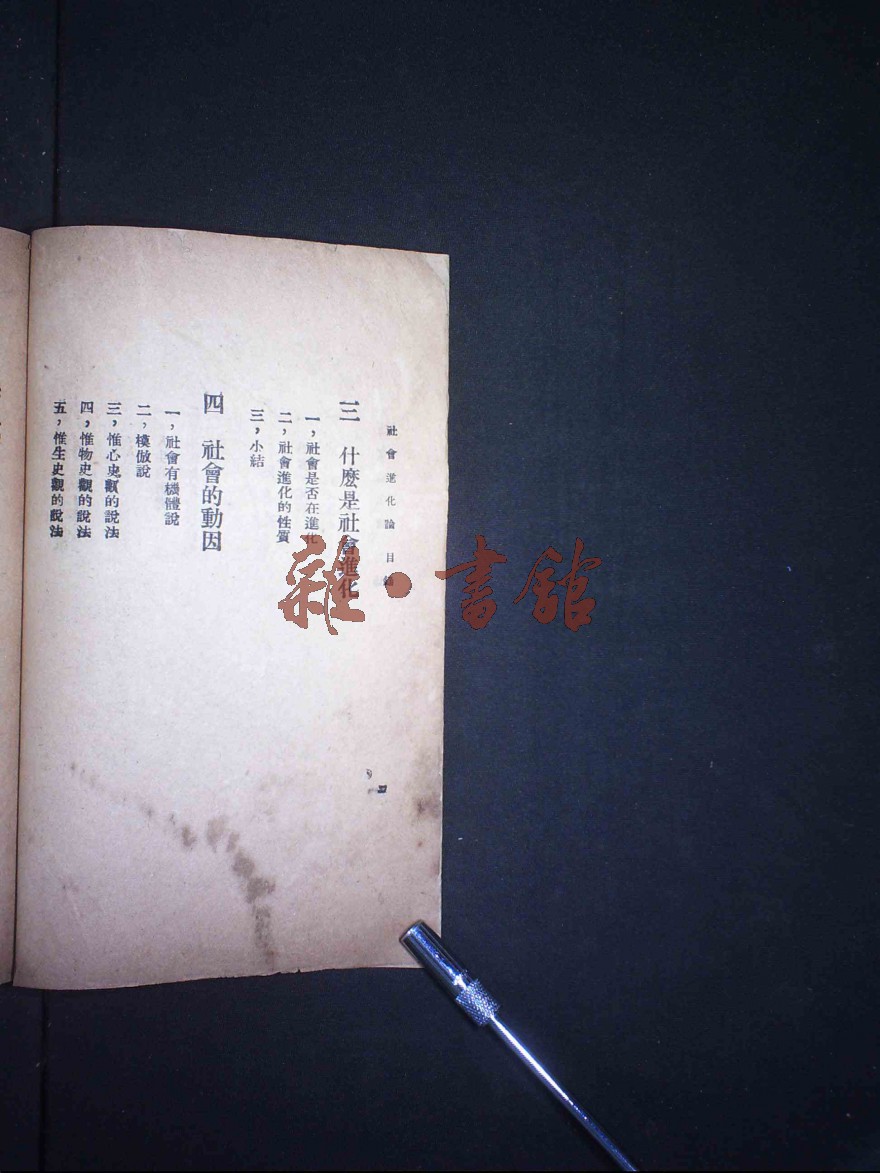 社會進化論 目錄
三 什麼是社會進化
一，社會是否在進化
二，社會進化的性質
三，小結
四 社會的動因
一，社會有機體說
二，模倣說
三，惟心史觀的說法
四，惟物史觀的說法
五，惟生史觀的說法
四
雜·書館